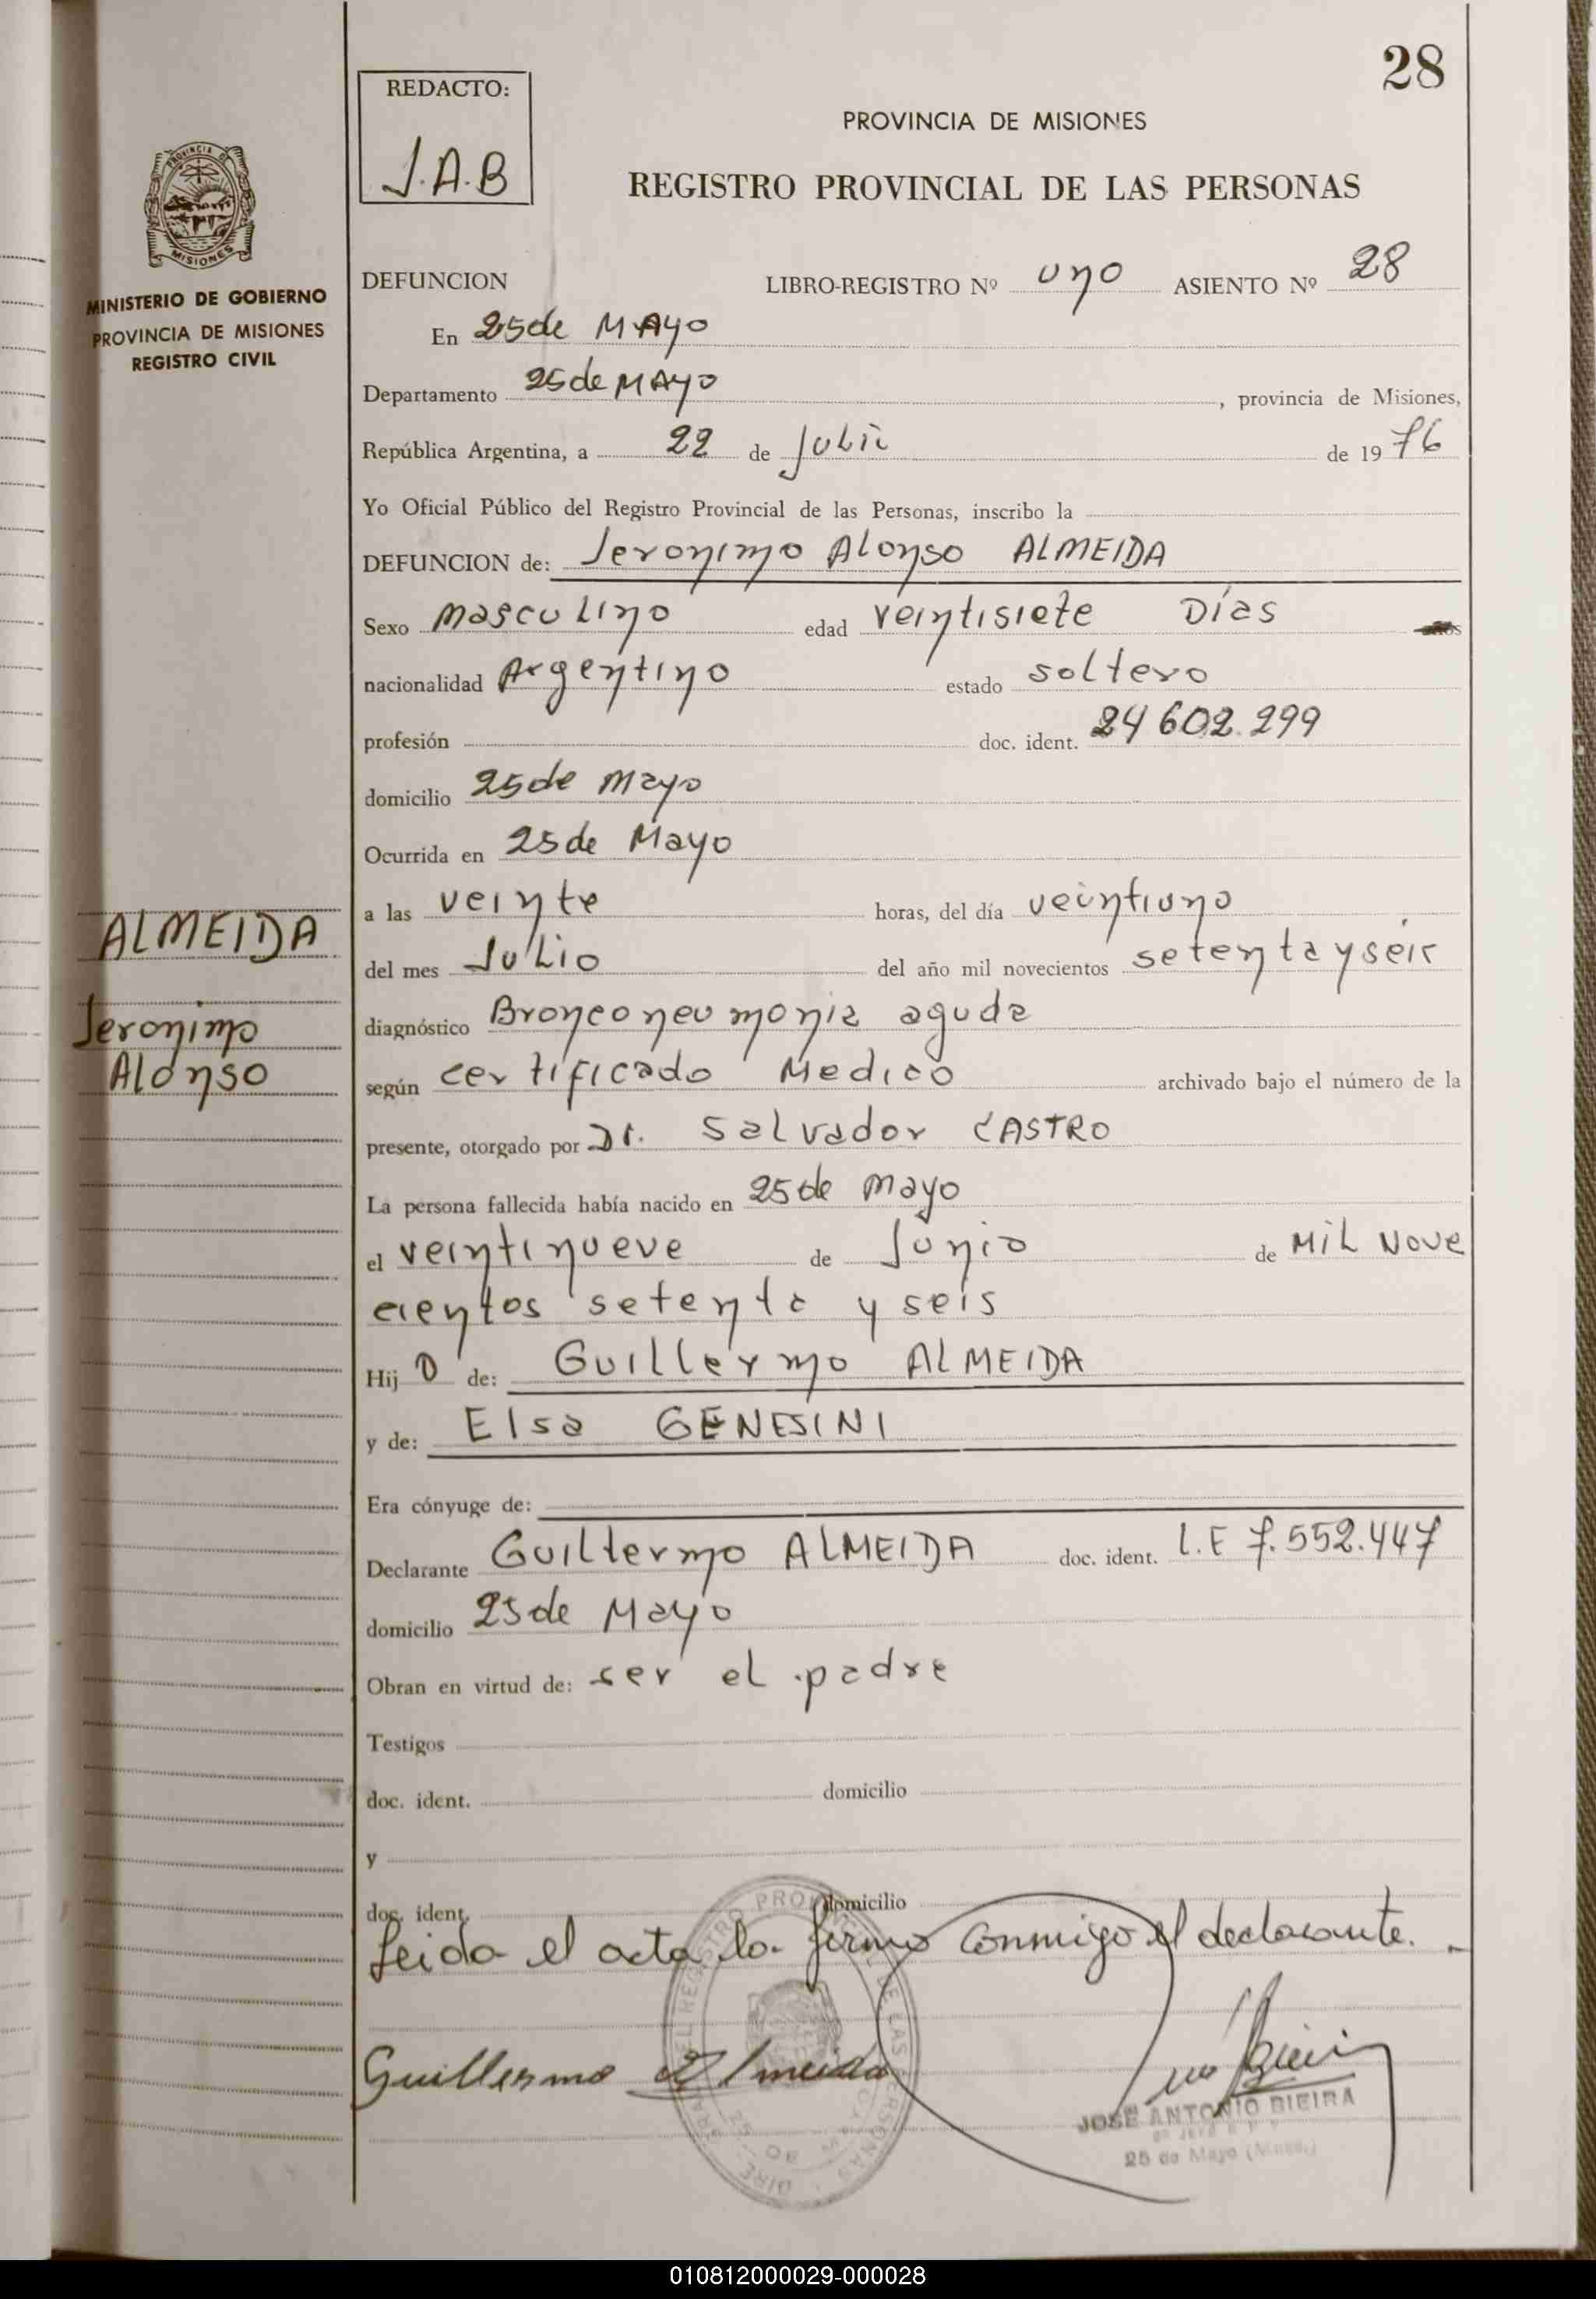 28
REDACTO:
J.A.B
PROVINCIA DE MISIONES
REGISTRO PROVINCIAL DE LAS PERSONAS
PROVINCIA DE
MISIONES
MINISTERIO DE GOBIERNO
PROVINCIA DE MISIONES
REGISTRO CIVIL
DEFUNCION LIBRO-REGISTRO Nº uno ASIENTO Nº 28
En 25 de MAyo
Departamento 25 de MAyo , provincia de Misiones,
República Argentina, a 22 de Julio de 19 76
Yo Oficial Público del Registro Provincial de las Personas, inscribo la
DEFUNCION de: Jeronimo Alonso ALMEIDA
Sexo masculino edad veintisiete Días
nacionalidad Argentino estado soltero
profesión doc. ident. 24 602.299
domicilio 25 de mayo
Ocurrida en 25 de Mayo
a las veinte horas, del día veintiuno
del mes Julio del año mil novecientos setenta y seis
diagnóstico Bronconeumonia aguda
según certificado Medico archivado bajo el número de la
presente, otorgado por Dr. Salvador CASTRO
La persona fallecida había nacido en 25 de mayo
el veintinueve de Junio de MiL Nove
cientos setenta y seis
Hij o de: Guillermo ALMEIDA
y de: Elsa GENESINI
Era cónyuge de:
Declarante Guillermo ALMEIDA doc. ident. L.E 7.552.447
domicilio 25 de Mayo
Obran en virtud de: ser el padre
Testigos
doc. ident. domicilio
y
doc. ident. domicilio
Leida el acta la firma conmigo el declarante.
Guillermo Almeida
JOSÉ ANTONIO BIEIRA
25 de Mayo
ALMEIDA
Jeronimo
Alonso
010812000029-000028